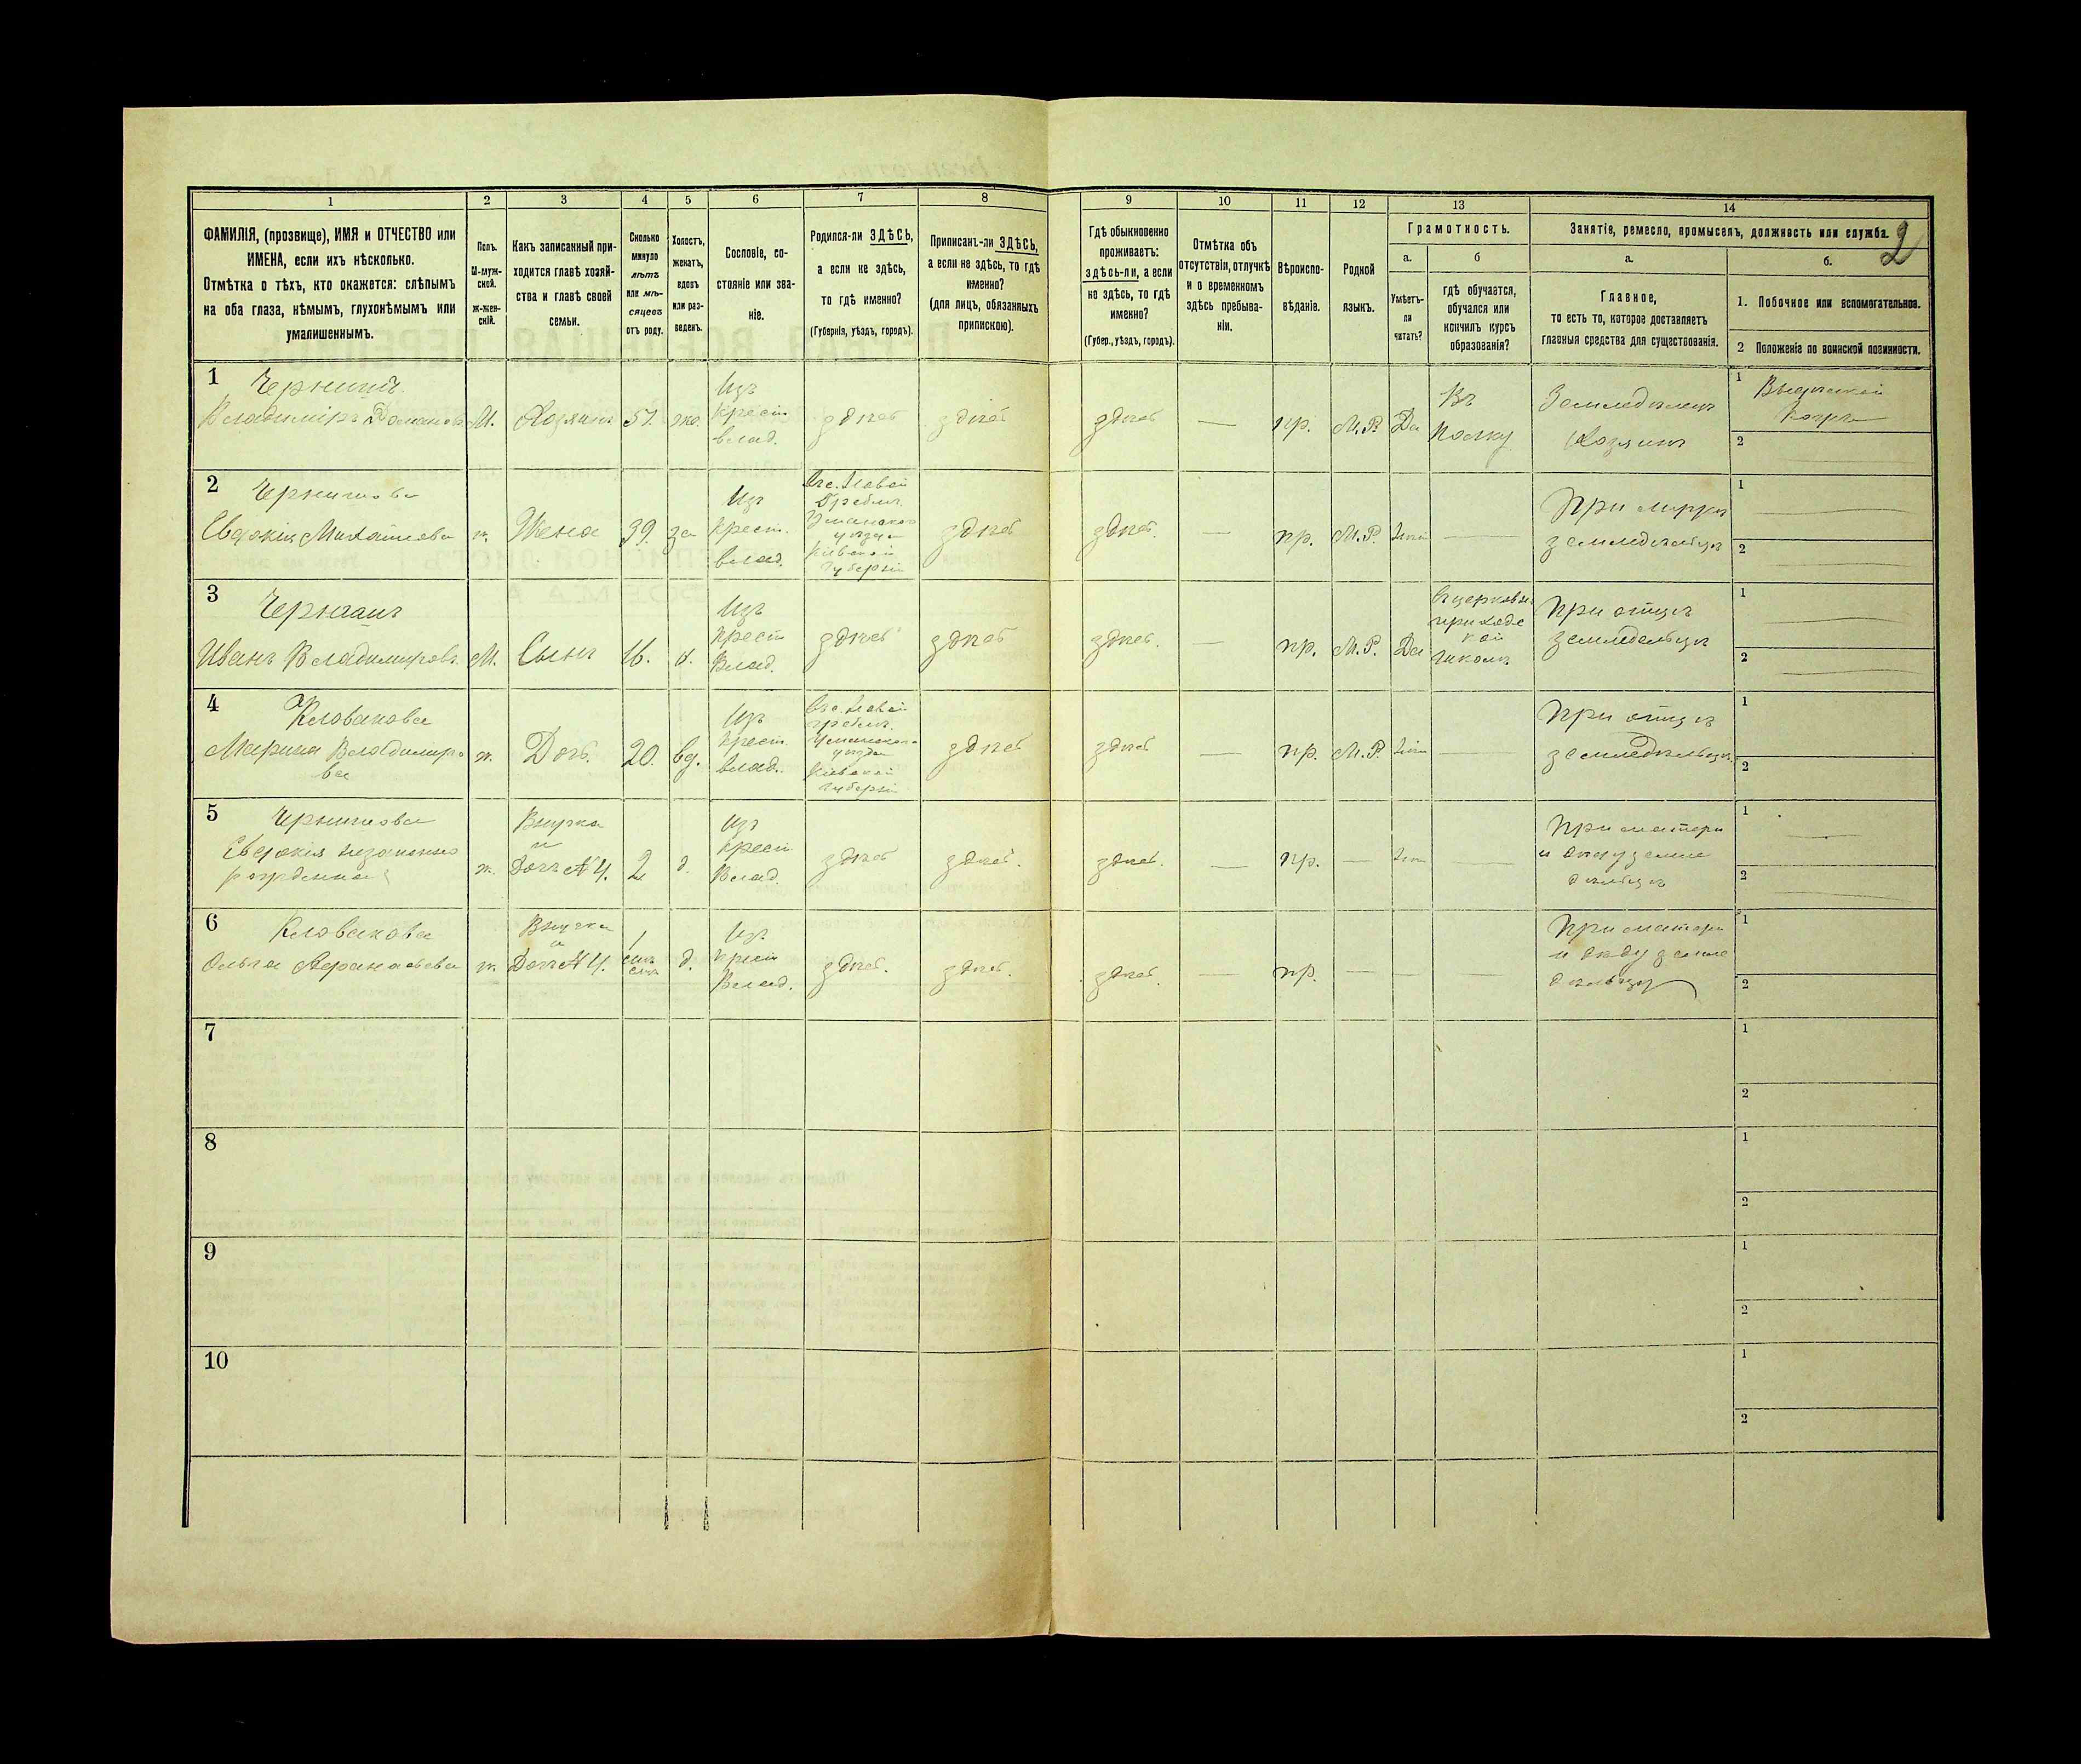 1
2
3
4
5
6
7
8
9
10
11
12
13
14
2
ФАМИЛІЯ, (прозвище), ИМЯ и ОТЧЕСТВО или
ИМЕНА, если ихъ нѣсколько.
Отмѣтка о тѣхъ, кто окажется: слѣпымъ
на оба глаза, нѣмымъ, глухонѣмымъ или
умалишеннымъ.
Полъ.
М-муж-
ской.
Ж-жен-
скій.
Какъ записанный при-
ходится главѣ хозяй-
ства и главѣ своей
семьи.
Сколько
минуло
лѣтъ
или мѣ-
сяцевъ
отъ роду.
Холостъ,
женатъ,
вдовъ
или раз-
веденъ.
Сословіе, со-
стояніе или зва-
ніе.
Родился-ли ЗДѢСЬ,
а если не здѣсь,
то гдѣ именно?
(Губернія, уѣздъ, городъ).
Приписанъ-ли ЗДѢСЬ,
а если не здѣсь, то гдѣ
именно?
(для лицъ, обязанныхъ
припискою).
Гдѣ обыкновенно
проживаетъ:
здѣсь-ли, а если
не здѣсь, то гдѣ
именно?
(Губер., уѣздъ, городъ).
Отмѣтка объ
отсутствіи, отлучкѣ
и о временномъ
здѣсь пребыва-
ніи.
Вѣроиспо-
вѣданіе.
Родной
языкъ.
Грамотность.
а.
Умѣетъ-
ли
читать?
б
гдѣ обучается,
обучался или
кончилъ курсъ
образованія?
Занятіе, ремесло, промыселъ, должность или служба.
а.
Главное,
то есть то, которое доставляетъ
главныя средства для существованія.
б.
1. Побочное или вспомогательное.
2 Положеніе по воинской повинности.
1
Владиміръ
М.
Хозяинъ
57.
же.
Изъ
крест
влад.
здѣсь
здѣсь
здѣсь
—
пр.
М.Р.
Да
Въ
Полку
Хозяинъ
1
2
2
Евдокія Михайлова
ж.
Жена
39.
за
Изъ
крест.
влад.
уѣзда
Кіевской
губерніи
здѣсь
здѣсь.
—
пр.
М.Р.
—
При мужѣ
земледѣльцѣ
1
2
3
Иванъ Владимировъ
М.
Сынъ
16.
х.
Изъ
крест
Влад.
здѣсь
здѣсь
здѣсь.
—
пр.
М.Р.
Да
школѣ
При отцѣ
земледѣльцѣ
1
2
4
Марина Владимиро
ва
ж.
Дочь.
20.
вд.
Изъ
крест.
влад.
уѣзда
Кіевской
губерніи
здѣсь
здѣсь
—
пр.
М.Р.
—
При отцѣ
земледѣльцѣ
1
2
5
Евдокія незаконно
рожденная
ж.
Внучка
и
Дочь № 4.
2
д.
Изъ
крест
Влад.
здѣсь
здѣсь.
здѣсь.
—
пр.
—
—
При матери
и дѣду земле
дѣльцѣ
1
2
6
Ольга Афанасьева
ж.
Внучка
и
Дочь № 4.
1
д.
Изъ
крест
Влад.
здѣсь.
здѣсь.
здѣсь.
—
пр.
—
—
При матери
и дѣду земле
дѣльцу
1
2
7
1
2
8
1
2
9
1
2
10
1
2